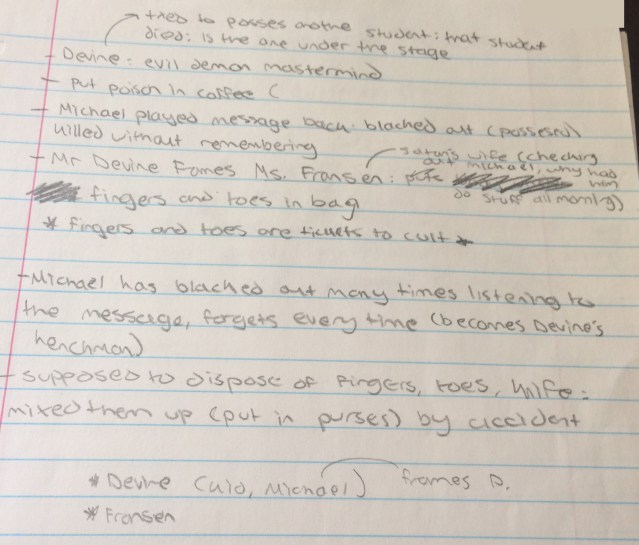 tries to posses another student: that student
died: is the one under the stage
- Devine: evil demon mastermind
- put poison in coffee (
- Michael played message back: blacked out (possessed)
killed without remembering
- Mr Devine Fames Ms. Fransen:
satan's wife (checking
out michael, why had
him
do stuff all morning)
fingers and toes in bag
* fingers and toes are tickets to cult *
- Michael has blacked out many times listening to
the message, forgets every time (becomes Devine's
henchman)
- supposed to dispose of fingers, toes, knife:
mixed them up (put in purses) by accident
* Devine (kid, Michael) frames D.
* Fransen